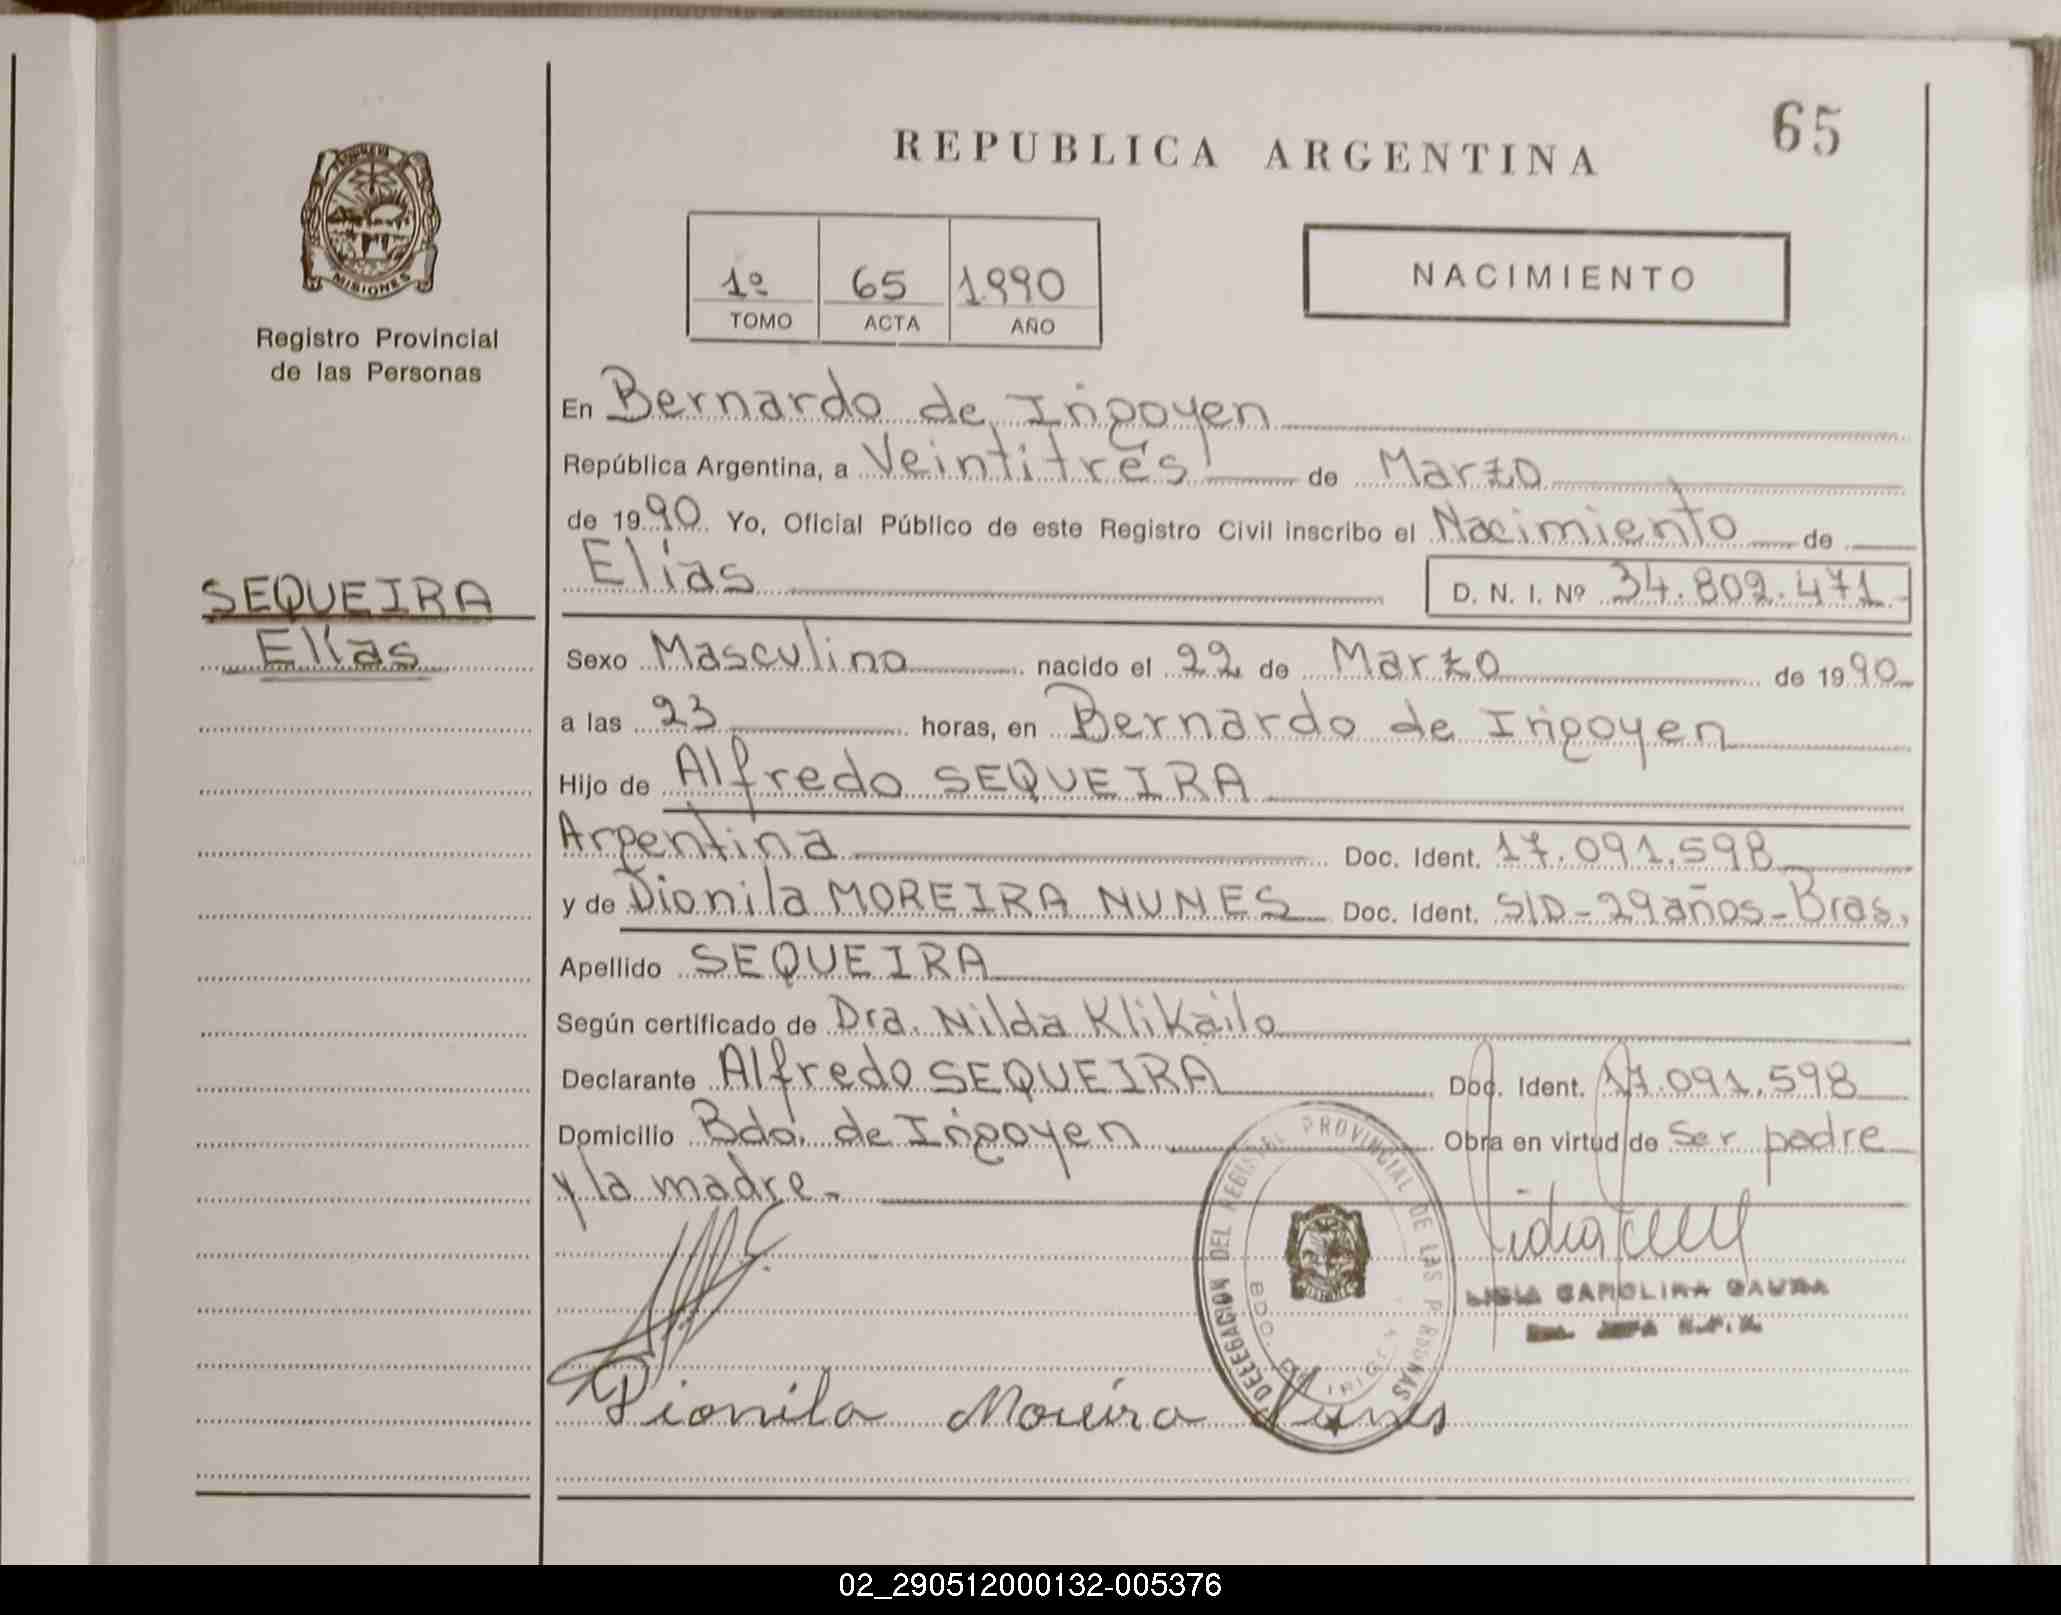 65
REPUBLICA ARGENTINA
1º 65 1990
TOMO ACTA AÑO
NACIMIENTO
MISIONES
Registro Provincial
de las Personas
En Bernardo de Irigoyen
República Argentina, a Veintitrés de Marzo
de 1990 Yo, Oficial Público de este Registro Civil inscribo el Nacimiento de
Elías D. N. I. Nº 34.802.471
SEQUEIRA
Elías
Sexo Masculino nacido el 22 de Marzo de 1990
a las 23 horas, en Bernardo de Irigoyen
Hijo de Alfredo SEQUEIRA
Argentina Doc. Ident. 17.091.598
y de Dionila MOREIRA NUNES Doc. Ident. S/D-29años-Bras.
Apellido SEQUEIRA
Según certificado de Dra. Nilda Klikailo
Declarante Alfredo SEQUEIRA Doc. Ident. 17.091.598
Domicilio Bdo. de Irigoyen Obra en virtud de ser padre
y la madre.
DELEGACION DEL REGIST PROVINCIAL DE LAS P RSONAS
BDO. DE IRIG
CAROLINA
Dionila Moreira Nunes
02_290512000132-005376